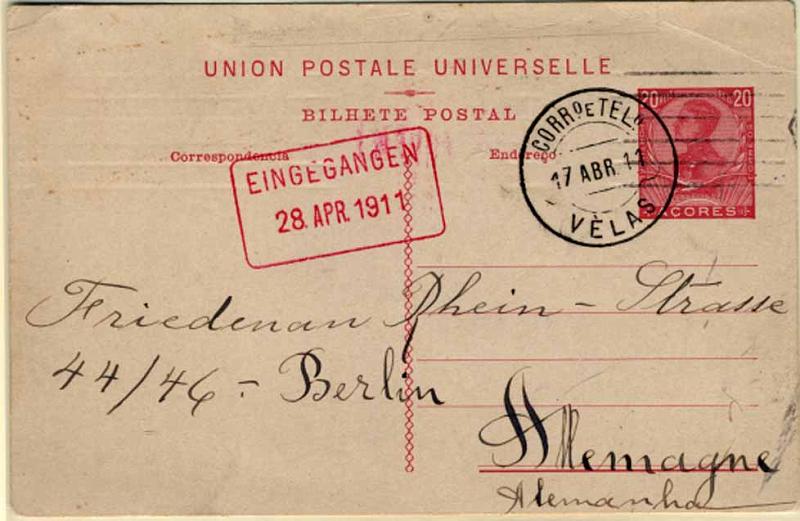 UNION POSTALE UNIVERSELLE
BILHETE POSTAL
Correspondencia
Endereço
20 20
AÇORES
CORRº E TELº
17 ABR. 11
VÈLAS
EINGEGANGEN
28. APR. 1911
Friedenan Rhein - Strasse
44/46 - Berlin
Allemagne
Alemanha